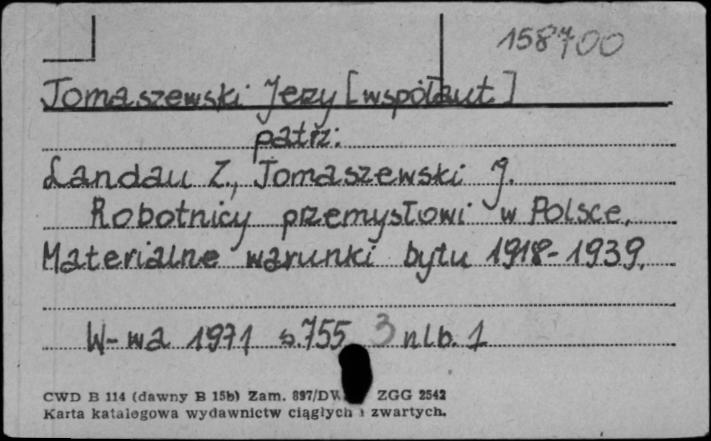 158700
Tomaszewski Jerzy [współaut.]
patrz:
Landau Z., Tomaszewski J.
Robotnicy przemysłowi w Polsce.
Materialne warunki bytu 1918-1939.
W-wa 1971 s. 755 3 nlb. 1
CWD B 114 (dawny B 15b) Zam. 897/DW ZGG 2542
Karta katalogowa wydawnictw ciągłych i zwartych.